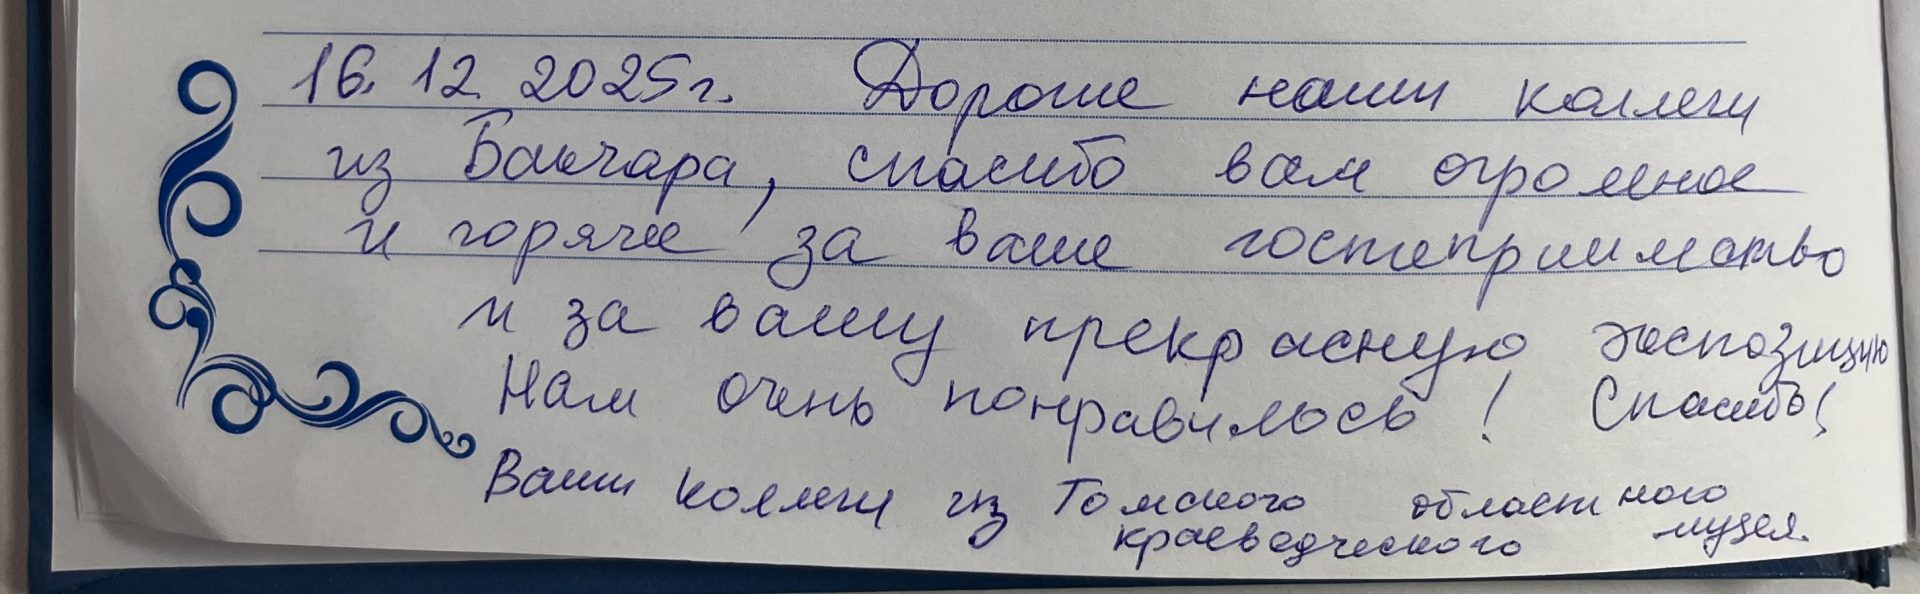 16. 12. 2025г. Дорогие наши коллеги
из Бакчара, спасибо вам огромное
и горячее за ваше гостеприимство
и за вашу прекрасную экспозицию
Нам очень понравилось! Спасибо!
Ваши коллеги из Томского областного
краеведческого музея.